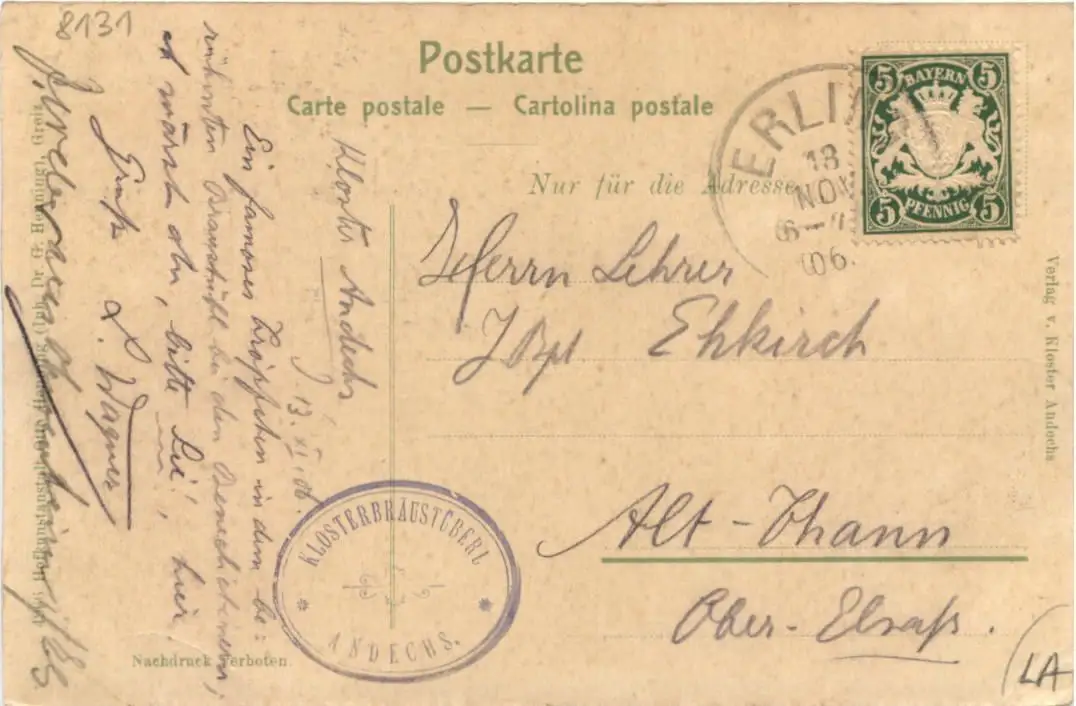 8131
Postkarte
Carte postale — Cartolina postale
Nur für die Adresse
BAYERN
5 5
5 5
PFENNIG
ERLIN
13
NOV
6-7
06.
Herrn Lehrer
J Bpt Ehkirch
Alt-Thann
Ober-Elsaß.
Kloster Andechs
13. XI. 06.
Ein famoses Tröpfchen in dem be:
rühmten Bräustübl bei den Benediktinern;
wärst du, bitte Dei! hier
Gruß
L. Wagner
KLOSTERBRÄUSTÜBERL
ANDECHS.
Nachdruck verboten.
Verlag v. Kloster Andechs
Dr. G. Henning), Greiz
LA